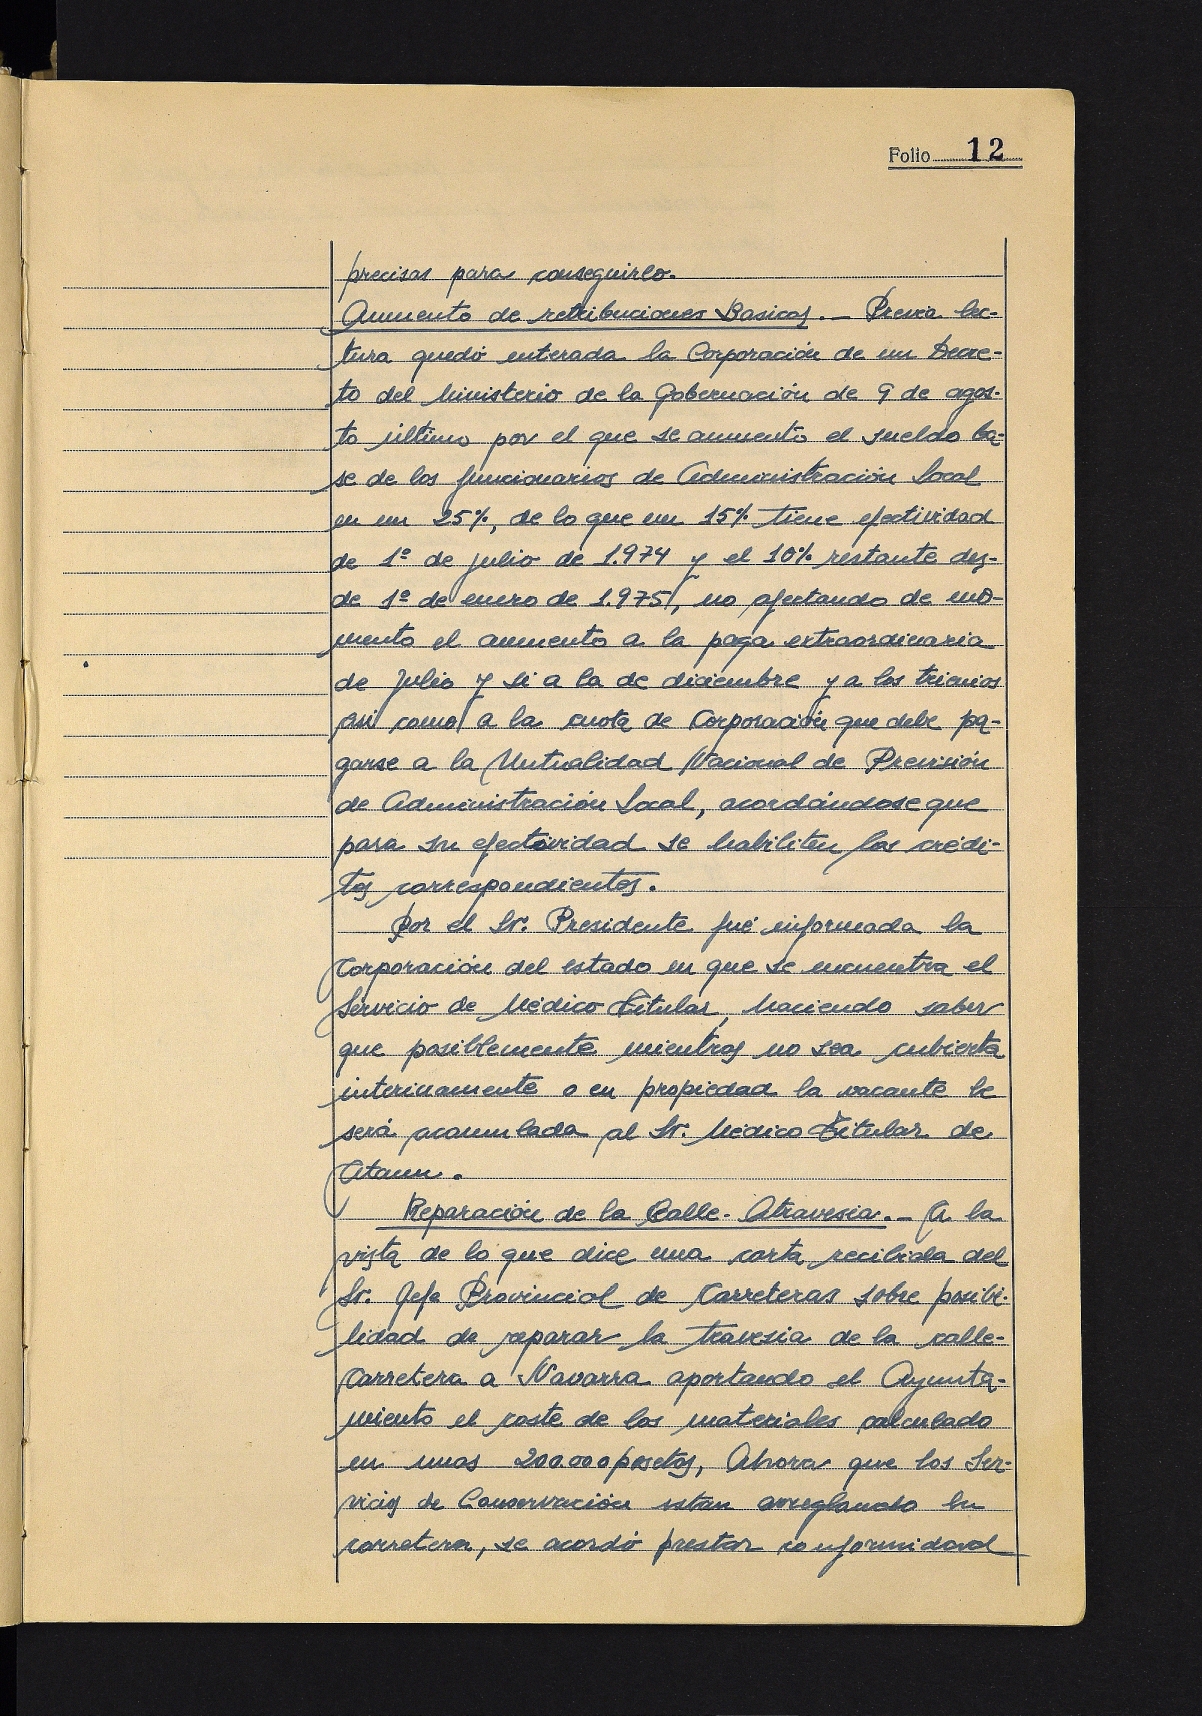 Folio 12
precisas para conseguirlo.
Aumento de retribuciones Basicas. — Previa lec-
tura quedó enterada la Corporación de un Decre-
to del Ministerio de la Gobernación de 9 de agos-
to último por el que se aumento el sueldo ba-
se de los funcionarios de Administración Local
en un 25%, de lo que un 15% tiene efectividad
de 1º de julio de 1.974 y el 10% restante des-
de 1º de enero de 1.975, no afectando de mo-
mento el aumento a la paga extraordinaria
de Julio y si a la de diciembre y a los trienios
asi como a la cuota de Corporación que debe pa-
garse a la Mutualidad Nacional de Previsión
de Administración Local, acordándose que
para su efectividad se habiliten los crédi-
tos correspondientes.
Por el Sr. Presidente fué informada la
Corporación del estado en que se encuentra el
Servicio de Médico Titular, haciendo saber
que posiblemente mientras no sea cubierta
interinamente o en propiedad la vacante le
será acumulada al Sr. Médico Titular de
Ataun.
Reparación de la Calle-Atravesia. — A la
vista de lo que dice una carta recibida del
Sr. Jefe Provincial de Carreteras sobre posibi-
lidad de reparar la travesia de la calle-
Carretera a Navarra aportando el Ayunta-
miento el coste de los materiales calculado
en unas 200.000 pesetas, Ahora que los Ser-
vicios de Conservación estan arreglando la
carretera, se acordó prestar conformidad